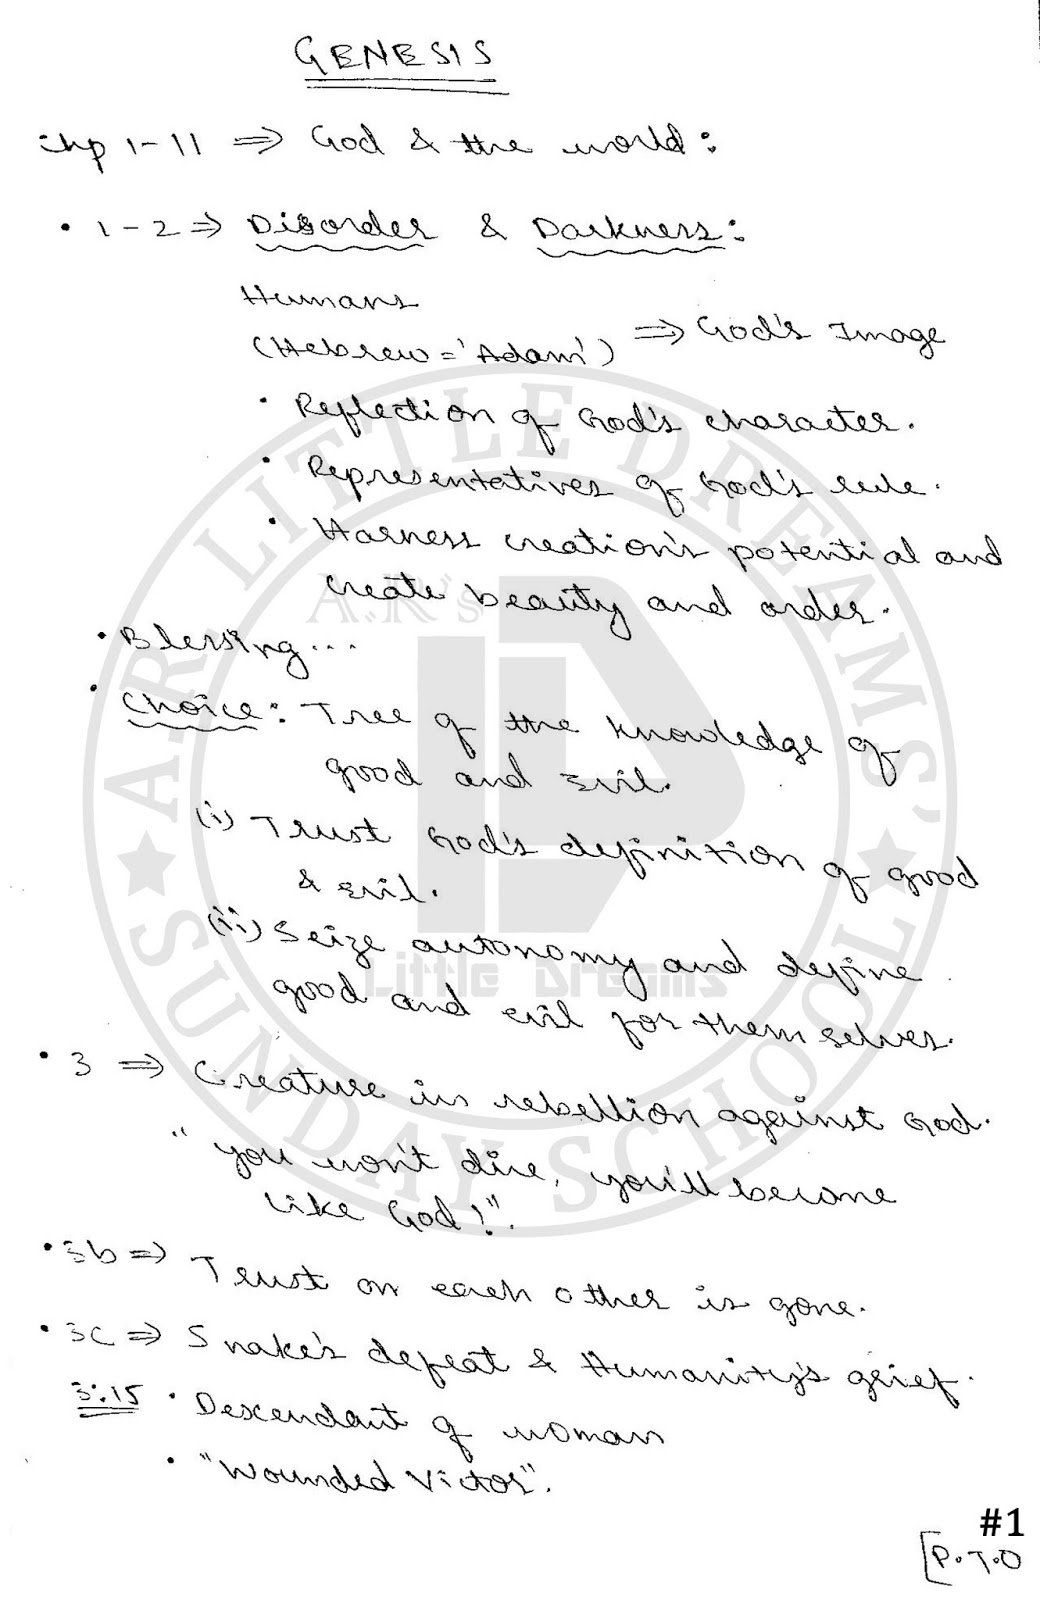 GENESIS
Chp 1-11 ⇒ God & the world:
• 1-2 ⇒ Disorder & Darkness:
Humans
(Hebrew = 'Adam') ⇒ God's Image
• Reflection of God's character.
• Representatives of God's rule.
• Harness creation's potential and
create beauty and order.
• Blessing...
• Choice: Tree of the knowledge of
good and evil.
(i) Trust God's definition of good
& evil.
(ii) Seize autonomy and define
good and evil for themselves.
• 3 ⇒ Creature in rebellion against God.
"you won't die, you'll become
like God!".
• 3b ⇒ Trust on each other is gone.
• 3c ⇒ Snake's defeat & Humanity's grief.
3:15 • Descendant of woman
• "Wounded Victor".
#1
[P.T.O
AR LITTLE DREAMS'
SUNDAY SCHOOL
A.R's
LD
Little Dreams